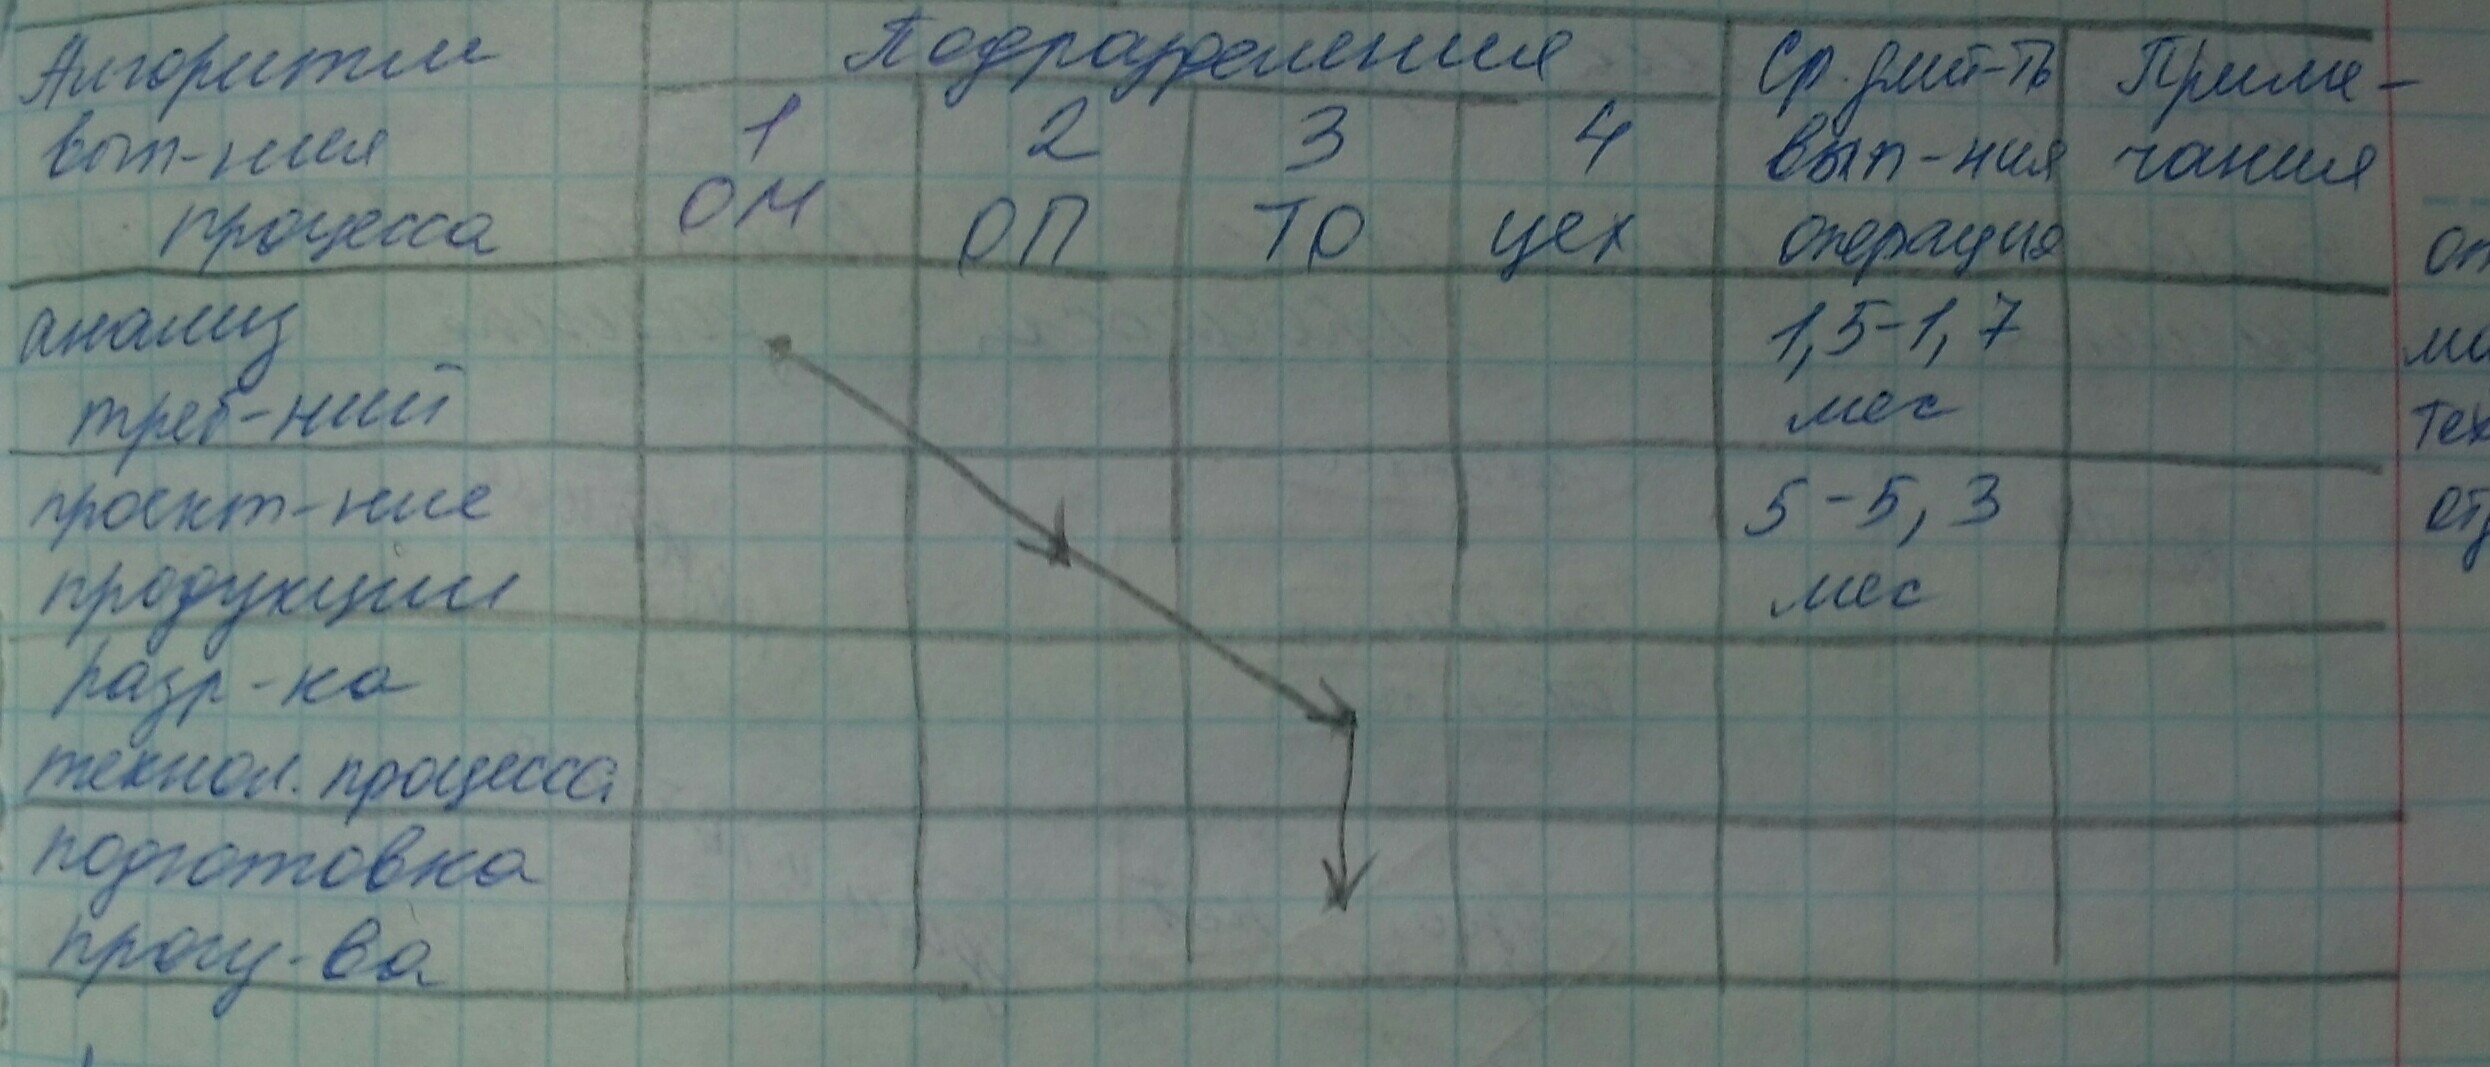 Алгоритм
вып-ния
процесса
Подразделения
1
ОМ
2
ОП
3
ТО
4
цех
Ср. длит-ть
вып-ния
операция
Приме-
чания
анализ
треб-ний
1,5-1,7
мес
проект-ние
продукции
5-5,3
мес
разр-ка
технол. процесса
подготовка
прозу-ва
оп
ми
тех
от